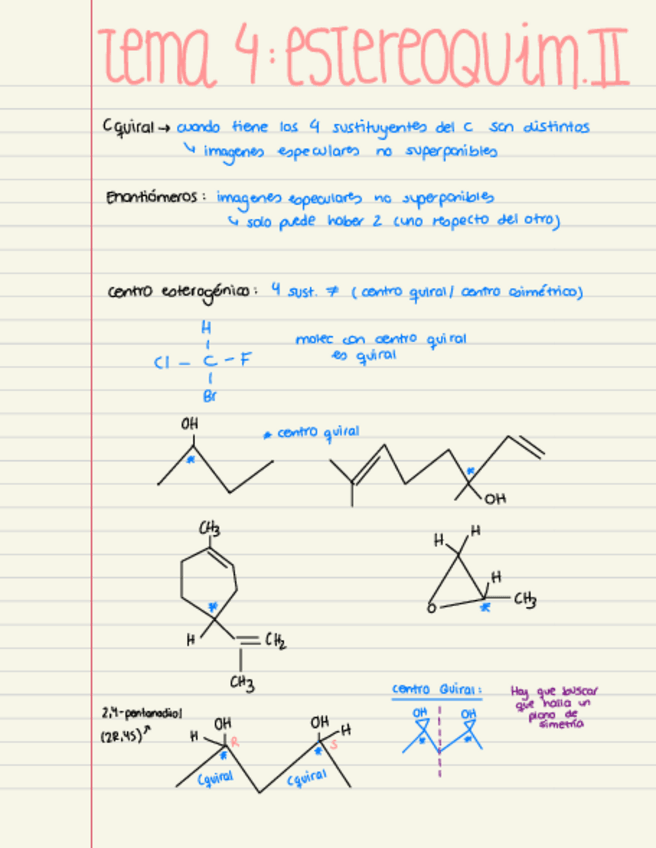 tema 4: estereoquim. II
C quiral → cuando tiene los 4 sustituyentes del C son distintos
↳ imagenes especulares no superponibles
Enantiómeros: imagenes especulares no superponibles
↳ solo puede haber 2 (uno respecto del otro)
centro esterogénico: 4 sust. ≠ (centro quiral/ centro asimétrico)
H
Cl – C – F
Br
molec con centro quiral
es quiral
OH
* centro quiral
*
*
OH
CH3
*
H
CH2
CH3
H H
H
O
*
CH3
2,4-pentanodiol
(2R,4S)
H OH
R
*
Cquiral
OH H
S
*
Cquiral
centro Quiral:
OH OH
* *
Hay que buscar
que halla un
plano de
simetría